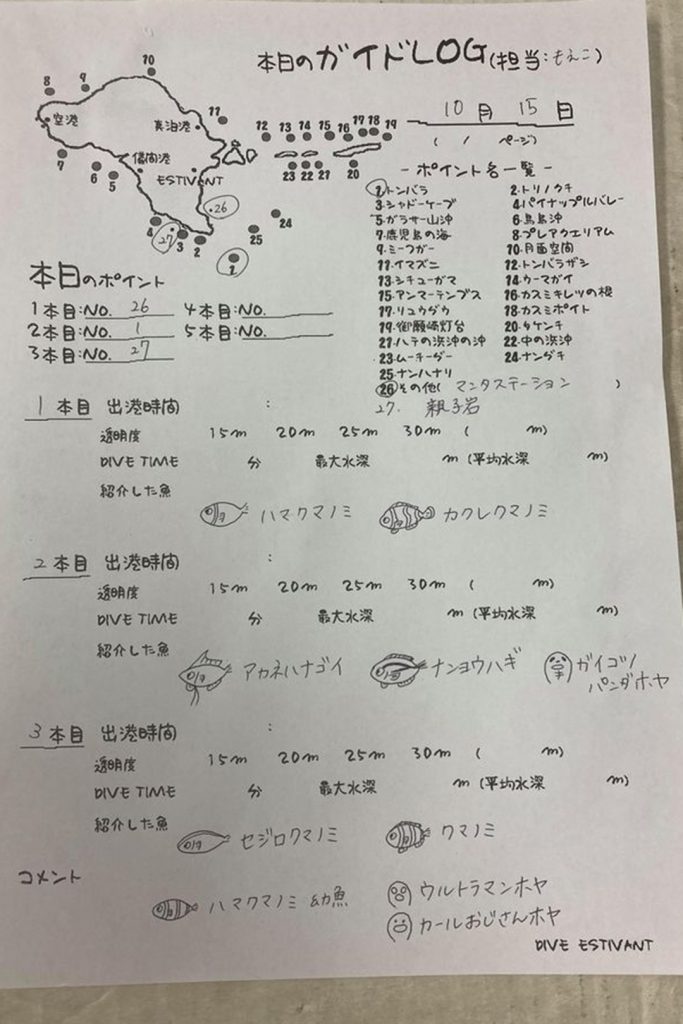 本日のガイドLOG(担当:もえこ)
10月 15日
( / ページ)
8 9 10 11 12 13 14 15 16 17 18 19
空港 真泊港
7 6 5 儀間港 23 22 21 20
ESTIVANT
26 24
4 27 3 2 25
1
-ポイント名一覧-
1.トンバラ 2.トリノクチ
3.シャドーケーブ 4.パイナップルバレー
5.ガラサー山沖 6.鳥島沖
7.鹿児島の海 8.プレアクエリアム
9.ミーフガー 10.月面空間
11.イマズニ 12.トンバラザシ
13.シチューガマ 14.ウーマガイ
15.アンマーテンプス 16.カスミキレツの根
17.リュウグウ 18.カスミポイト
19.御願崎灯台 20.タケンチ
21.ハテの浜沖の沖 22.中の浜沖
23.ムーチーグー 24.ナンダキ
25.ナンハナリ
26.その他( マンタステーション )
27. 親子岩
本日のポイント
1本目:NO. 26 4本目:NO.
2本目:NO. 1 5本目:NO.
3本目:NO. 27
1本目 出港時間 :
透明度 15m 20m 25m 30m ( m)
DIVE TIME 分 最大水深 m (平均水深 m)
紹介した魚
ハマクマノミ カクレクマノミ
2本目 出港時間 :
透明度 15m 20m 25m 30m ( m)
DIVE TIME 分 最大水深 m (平均水深 m)
紹介した魚
アカネハナゴイ ナンヨウハギ ガイコツ
パンダホヤ
3本目 出港時間 :
透明度 15m 20m 25m 30m ( m)
DIVE TIME 分 最大水深 m (平均水深 m)
紹介した魚
セジロクマノミ クマノミ
コメント
ハマクマノミ 幼魚 ウルトラマンホヤ
カールおじさんホヤ
DIVE ESTIVANT